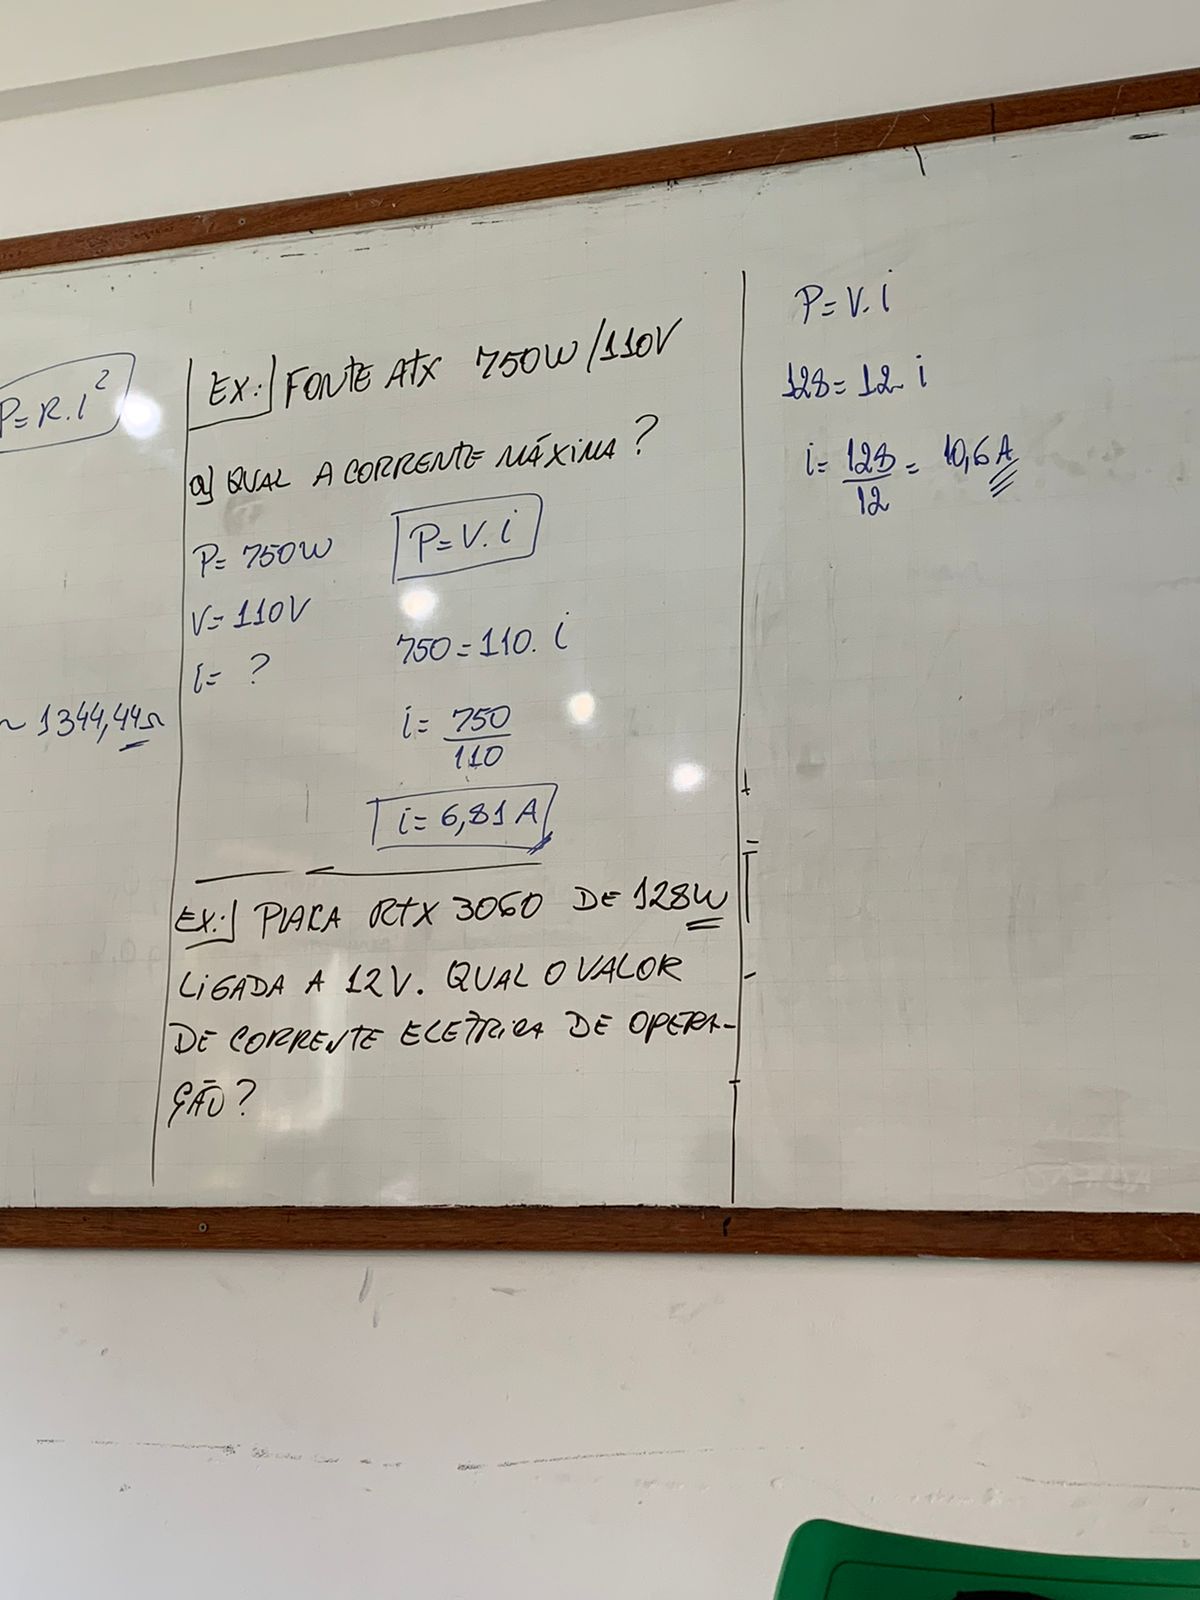 P=R.i²
~ 1344,44Ω
EX.: FONTE ATX 750W/110V
a) QUAL A CORRENTE MÁXIMA?
P= 750W
V= 110V
i= ?
P=V.i
750=110.i
i= 750/110
i= 6,81 A
EX.: PLACA RTX 3060 DE 128W
LIGADA A 12V. QUAL O VALOR
DE CORRENTE ELÉTRICA DE OPERA-
ÇÃO?
P=V.i
128=12.i
i= 128/12 = 10,6A